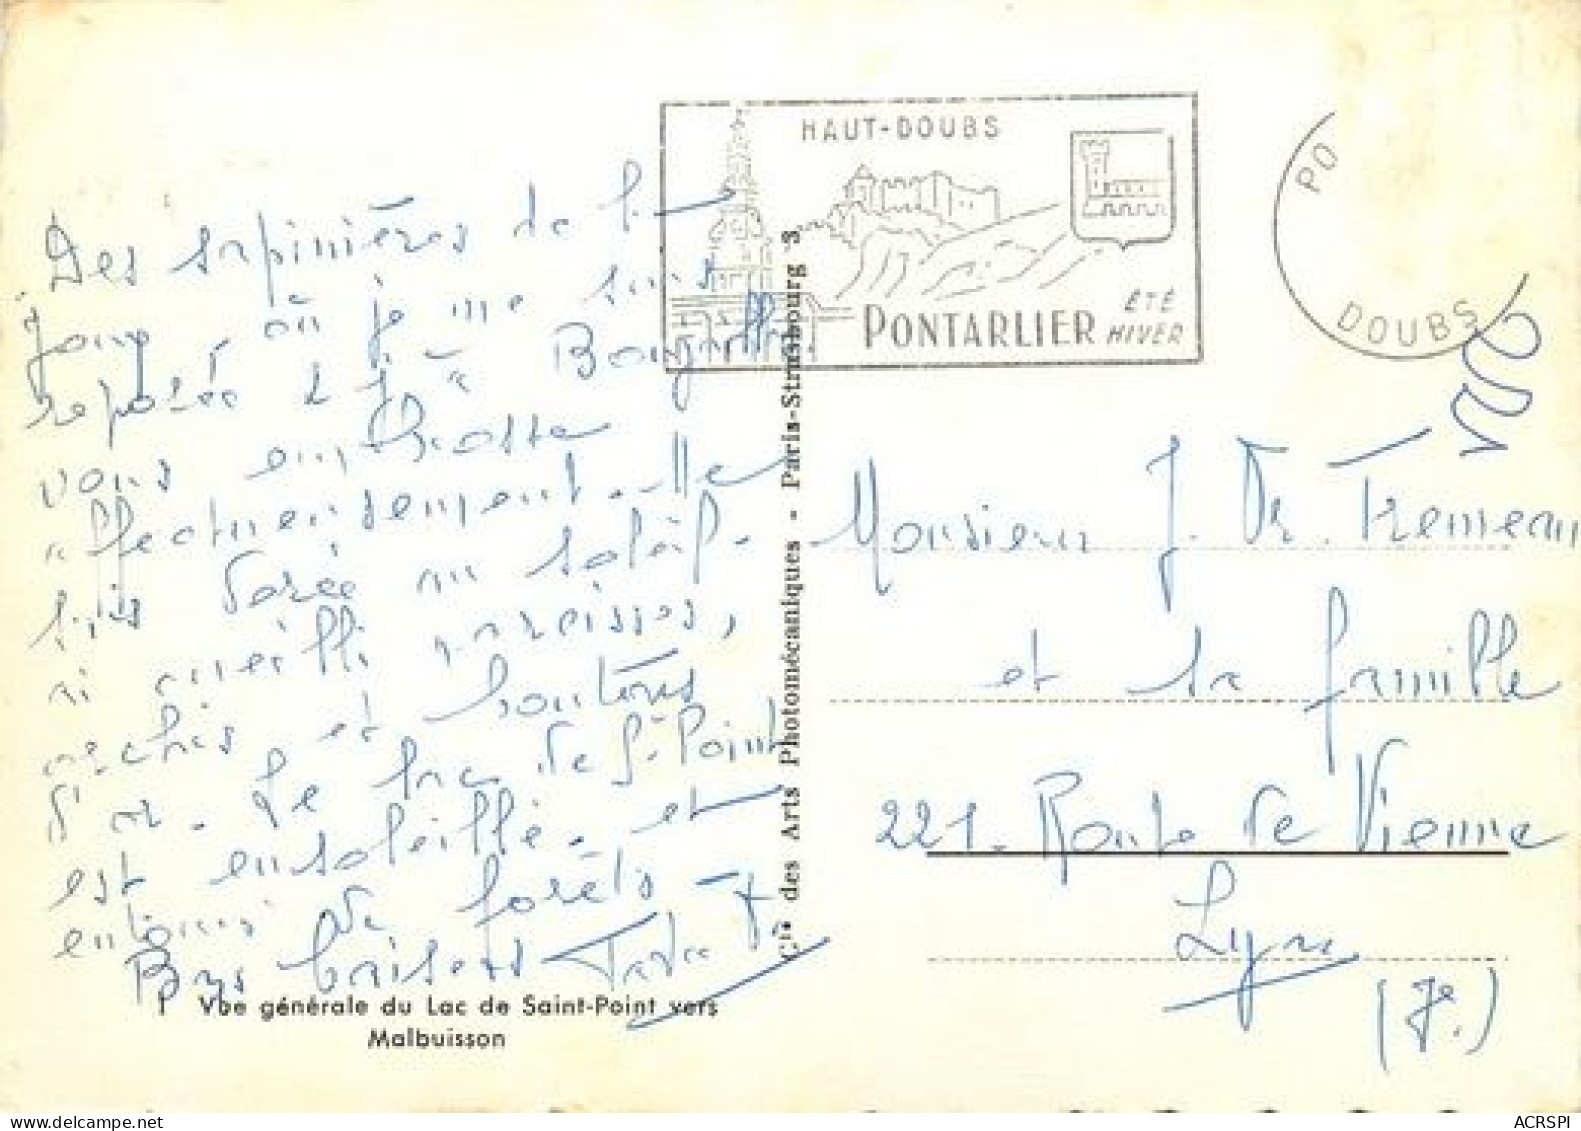 HAUT-DOUBS
PONTARLIER ÉTÉ
HIVER
PO
DOUBS
Des sapinières de la
Joux, où je me suis
reposée
vous embrasse
affectueusement. Me
suis dorée au soleil.
ai cueilli narcisses,
orchis et boutons
d'or. Le lac de St-Point
est ensoleillé. et
entouré de forêts -
Bons baisers
Cie des Arts Photomécaniques - Paris-Strasbourg 3
Monsieur J. Dr. Tremeau
et sa famille
221 - Route de Vienne
Lyon
(7e.)
Vue générale du Lac de Saint-Point vers
Malbuisson
ACRSPI